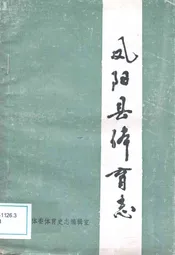 凤阳县体育志
体委体育史志编辑室
1126.3